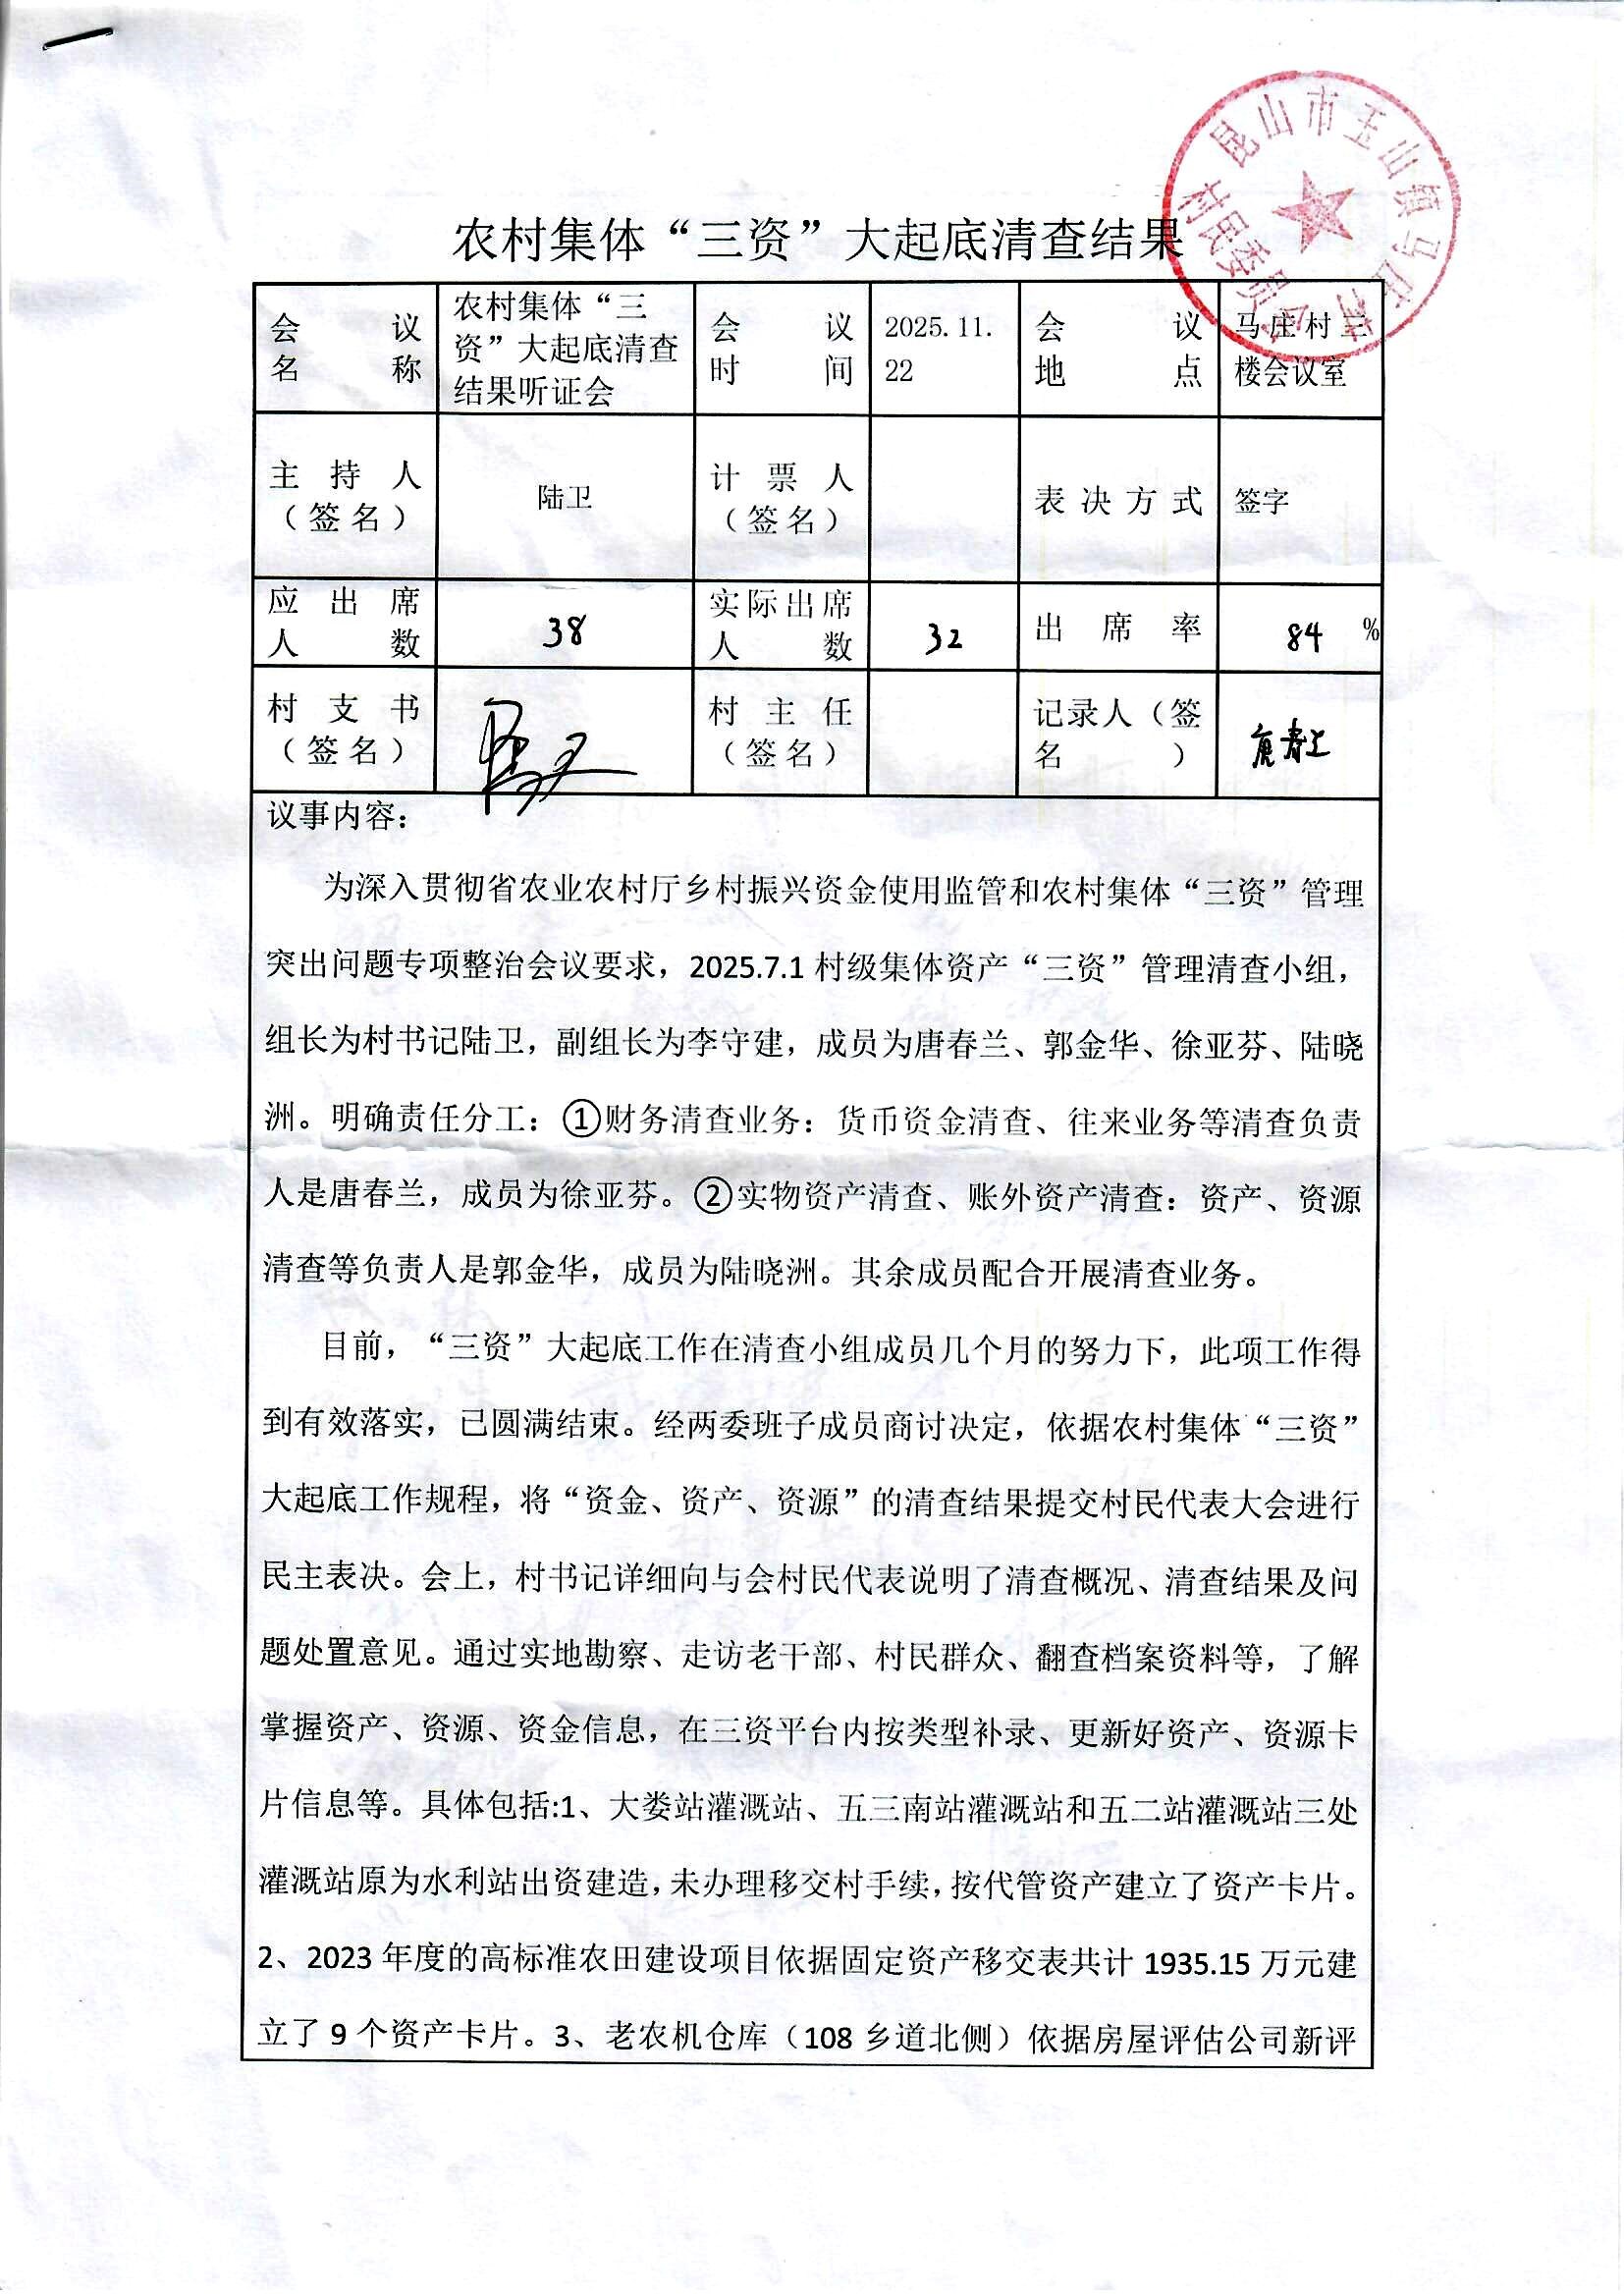 昆山市玉山镇马庄村
村民委员会
农村集体“三资”大起底清查结果
会议名称 农村集体“三资”大起底清查结果听证会 会议时间 2025.11.22 会议地点 马庄村三楼会议室
主持人（签名） 陆卫 计票人（签名） 表决方式 签字
应出席人数 38 实际出席人数 32 出席率 84 %
村支书（签名） 村主任（签名） 记录人（签名）
议事内容：
为深入贯彻省农业农村厅乡村振兴资金使用监管和农村集体“三资”管理
突出问题专项整治会议要求，2025.7.1 村级集体资产“三资”管理清查小组，
组长为村书记陆卫，副组长为李守建，成员为唐春兰、郭金华、徐亚芬、陆晓
洲。明确责任分工：①财务清查业务：货币资金清查、往来业务等清查负责
人是唐春兰，成员为徐亚芬。②实物资产清查、账外资产清查：资产、资源
清查等负责人是郭金华，成员为陆晓洲。其余成员配合开展清查业务。
目前，“三资”大起底工作在清查小组成员几个月的努力下，此项工作得
到有效落实，已圆满结束。经两委班子成员商讨决定，依据农村集体“三资”
大起底工作规程，将“资金、资产、资源”的清查结果提交村民代表大会进行
民主表决。会上，村书记详细向与会村民代表说明了清查概况、清查结果及问
题处置意见。通过实地勘察、走访老干部、村民群众、翻查档案资料等，了解
掌握资产、资源、资金信息，在三资平台内按类型补录、更新好资产、资源卡
片信息等。具体包括:1、大娄站灌溉站、五三南站灌溉站和五二站灌溉站三处
灌溉站原为水利站出资建造，未办理移交村手续，按代管资产建立了资产卡片。
2、2023 年度的高标准农田建设项目依据固定资产移交表共计 1935.15 万元建
立了 9 个资产卡片。3、老农机仓库（108 乡道北侧）依据房屋评估公司新评